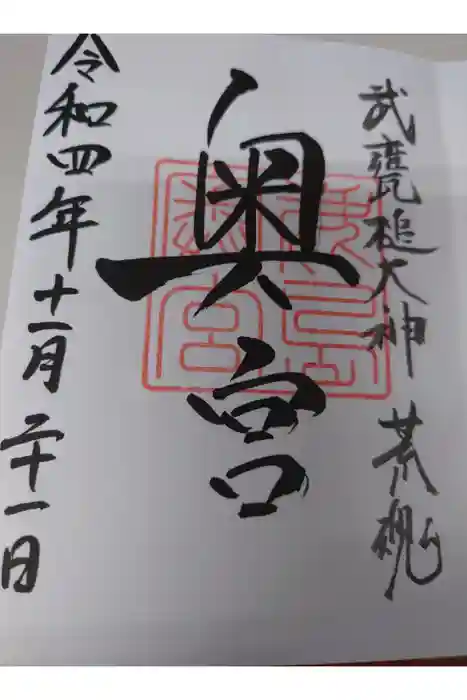 武甕槌大神 荒魂
奥宮
鹿島奥宮
令和四年十一月二十一日